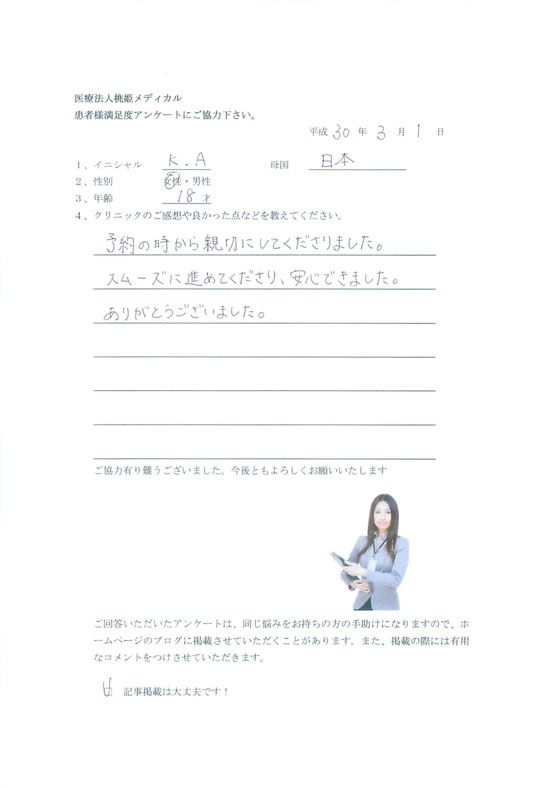 医療法人桃姫メディカル
患者様満足度アンケートにご協力下さい。
平成 30 年 3 月 1 日
1、イニシャル K.A 母国 日本
2、性別 女性・男性
3、年齢 18才
4、クリニックのご感想や良かった点などを教えてください。
予約の時から親切にしてくださりました。
スムーズに進めてくださり、安心できました。
ありがとうございました。
ご協力有り難うございました。今後ともよろしくお願いいたします
ご回答いただいたアンケートは、同じ悩みをお持ちの方の手助けになりますので、ホ
ームページのブログに掲載させていただくことがあります。また、掲載の際には有用
なコメントをつけさせていただきます。
記事掲載は大丈夫です！